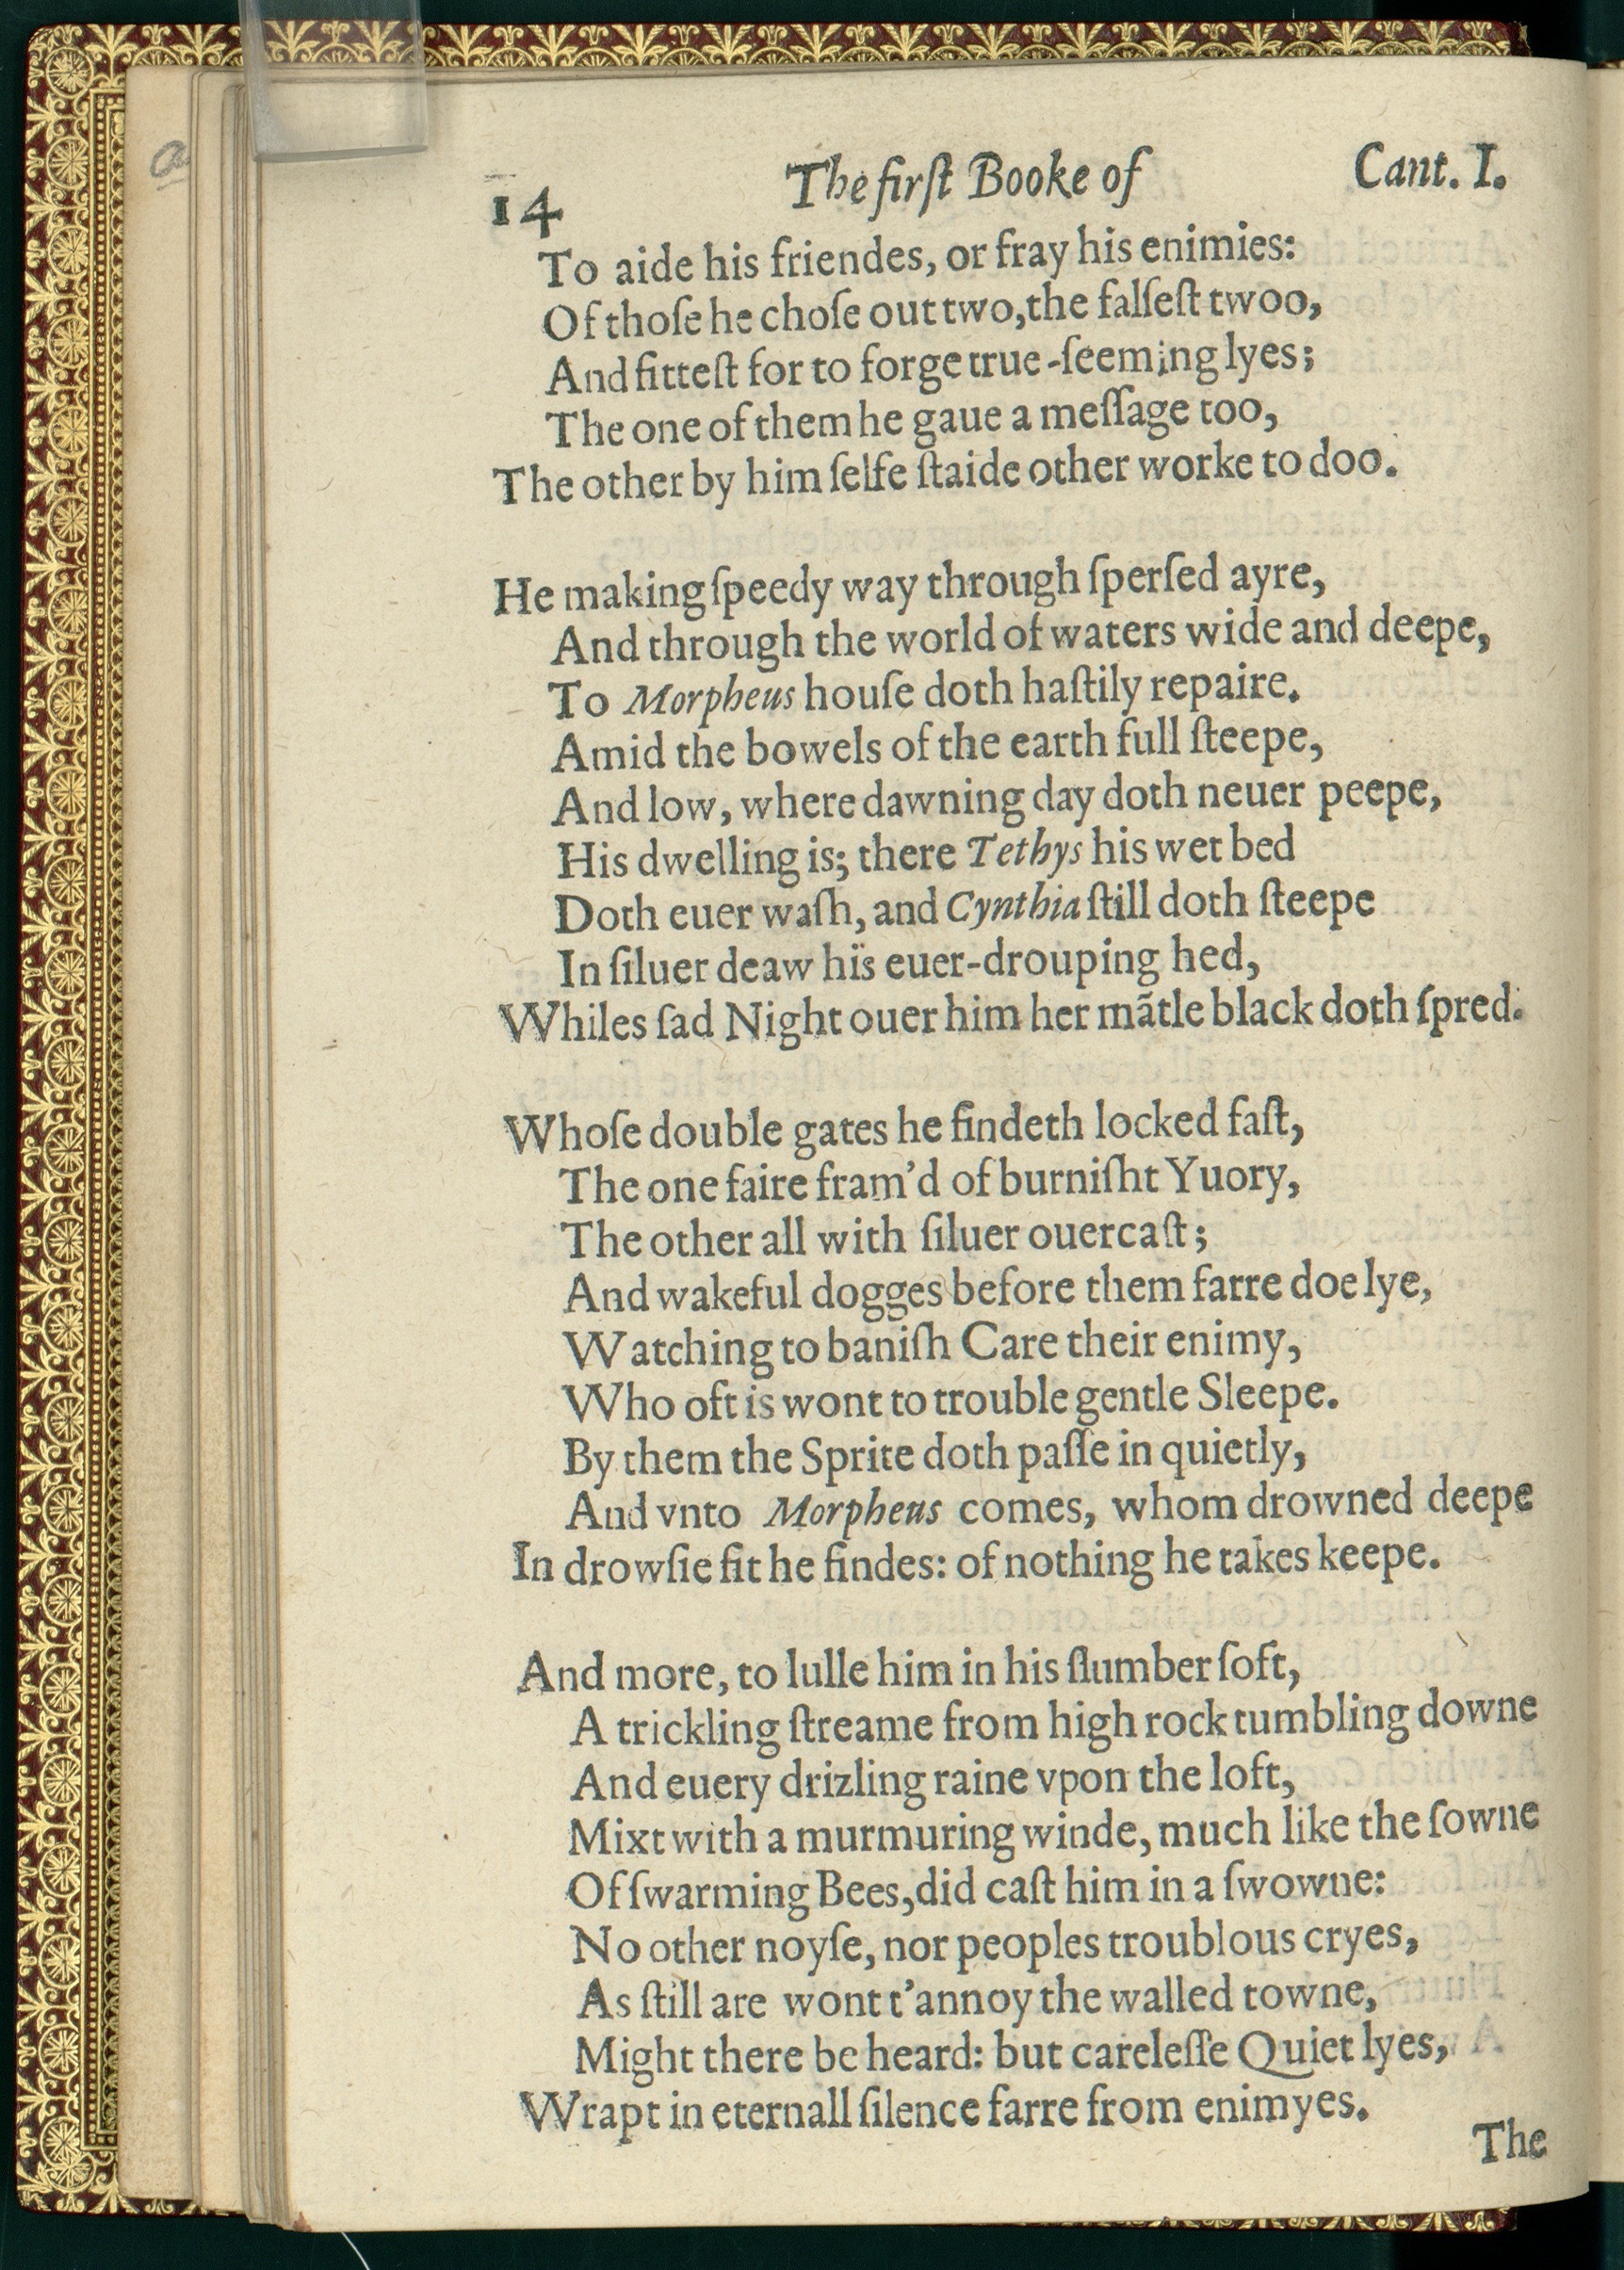 a
14 The firſt Booke of Cant. I.
To aide his friendes, or fray his enimies:
Of thoſe he choſe out two, the falſeſt twoo,
And fitteſt for to forge true-ſeeming lyes;
The one of them he gaue a meſſage too,
The other by him ſelfe ſtaide other worke to doo.
He making ſpeedy way through ſperſed ayre,
And through the world of waters wide and deepe,
To Morpheus houſe doth haſtily repaire.
Amid the bowels of the earth full ſteepe,
And low, where dawning day doth neuer peepe,
His dwelling is; there Tethys his wet bed
Doth euer waſh, and Cynthia ſtill doth ſteepe
In ſiluer deaw his euer-drouping hed,
Whiles ſad Night ouer him her mãtle black doth ſpred.
Whoſe double gates he findeth locked faſt,
The one faire fram'd of burniſht Yuory,
The other all with ſiluer ouercaſt;
And wakeful dogges before them farre doe lye,
Watching to baniſh Care their enimy,
Who oft is wont to trouble gentle Sleepe.
By them the Sprite doth paſſe in quietly,
And vnto Morpheus comes, whom drowned deepe
In drowſie fit he findes: of nothing he takes keepe.
And more, to lulle him in his ſlumber ſoft,
A trickling ſtreame from high rock tumbling downe
And euery drizling raine vpon the loft,
Mixt with a murmuring winde, much like the ſowne
Of ſwarming Bees, did caſt him in a ſwowne:
No other noyſe, nor peoples troublous cryes,
As ſtill are wont t'annoy the walled towne,
Might there be heard: but careleſſe Quiet lyes,
Wrapt in eternall ſilence farre from enimyes.
The